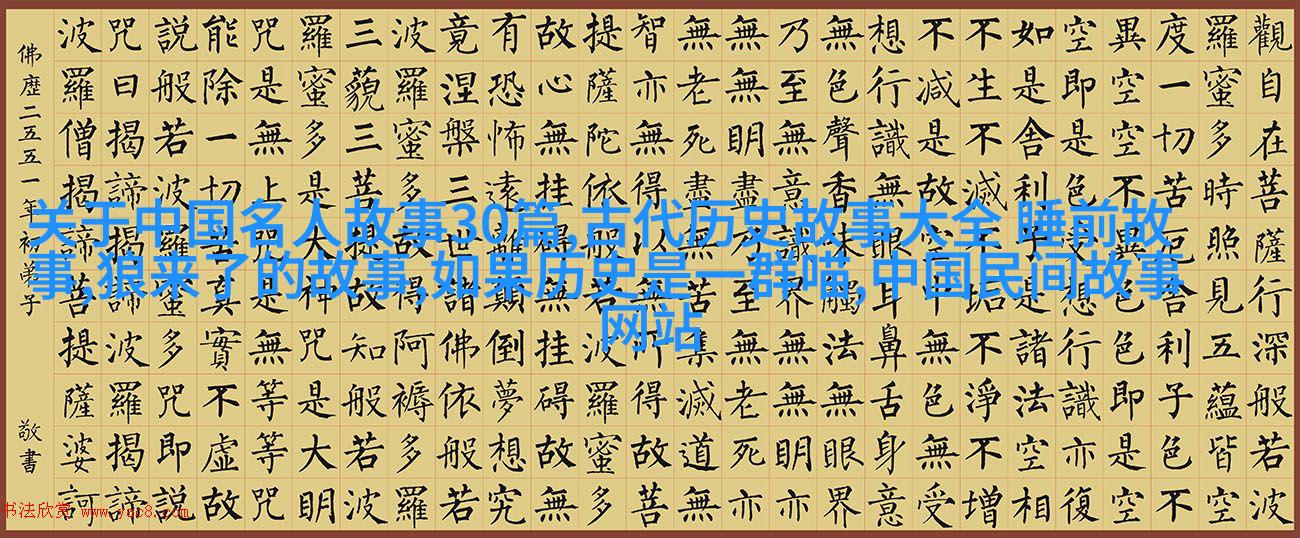 关于中国名人故事30篇,古代历史故事大全 睡前故
事,狼来了的故事,如果历史是一群喵,中国民间故事
网站
觀自在菩薩行深般若波
羅蜜多時照見五蘊皆空
度一切苦厄舍利子色不
異空空不異色色即是空
空即是色受想行識亦復
如是舍利子是諸法空相
不生不滅不垢不淨不增
不減是故空中無色無受
想行識無眼耳鼻舌身意
無色聲香味觸法無眼界
乃至無意識界無無明亦
無無明盡乃至無老死亦
無老死盡無苦集滅道無
智亦無得以無所得故菩
提薩陀依般若波羅蜜多
故心無挂礙無挂碍故無
有恐怖遠離顛倒夢想究
竟涅槃三世諸佛依般若
波羅蜜多故得阿褥多羅
三藐三菩提故知般若波
羅蜜多是大神咒是大明
咒是無上咒是無等等咒
能除一切苦真實不虛故
説般若波羅蜜多咒即説
咒曰揭諦揭諦波羅揭諦
波羅僧揭諦菩提薩婆訶
佛歷二五五一年初弟子 敬書
书法欣赏 www.yac8.com